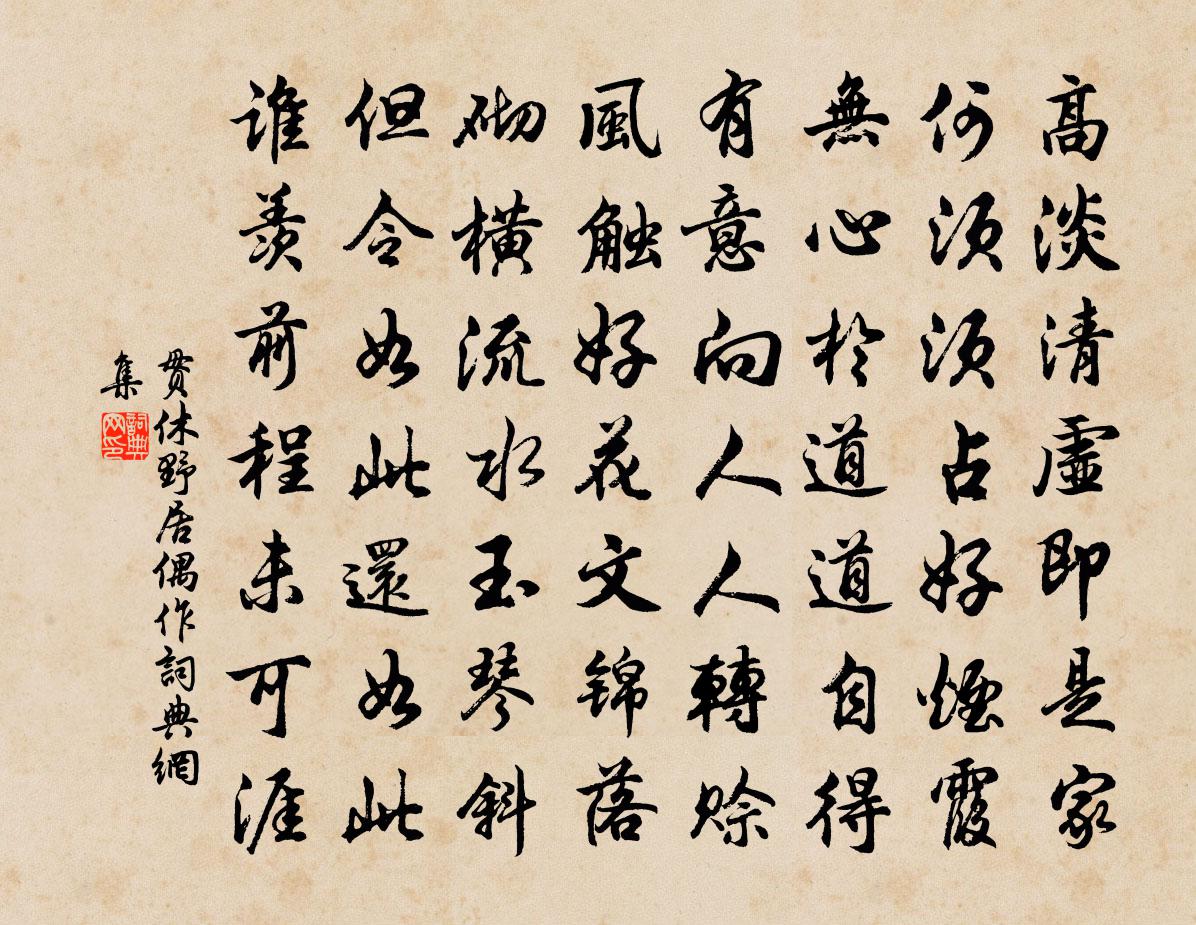 高淡清虛即是家
何須須占好煙霞
無心於道道自得
有意向人人轉賒
風触好花文锦落
砌橫流水玉琴斜
但令如此還如此
誰羨前程未可涯
貫休野居偶作詞典網
集
詞典
网印